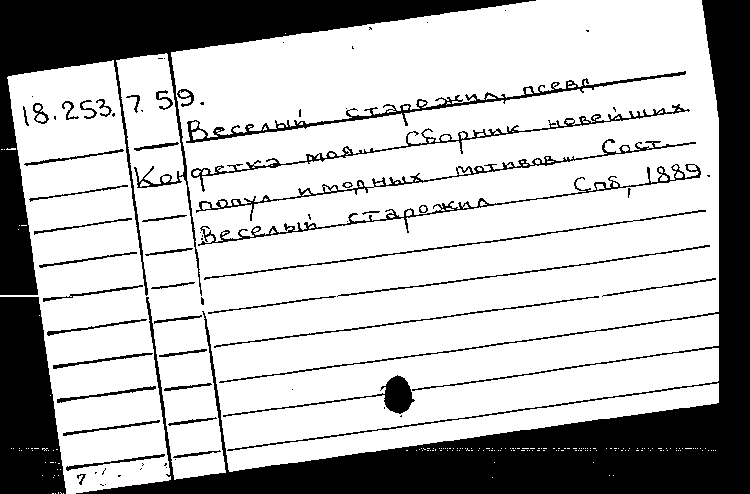 18.253.7.59.
Веселый старожил, псевд.
Конфетка моя... Сборник новейших
попул. и модных мотивов... Сост.
Веселый старожил Спб, 1889.
7